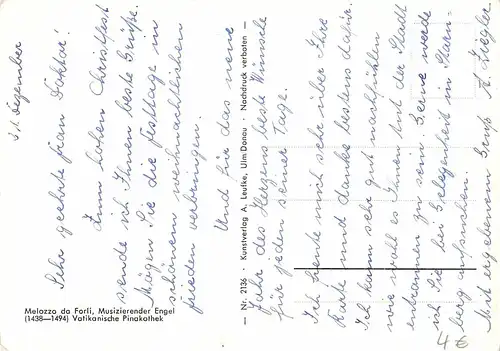 31. Dezember
Sehr geehrte Frau Doktor!
Zum hohen Christfest
sende ich Ihnen beste Grüße.
Mögen Sie die Festtage im
schönem weihnachtlichen
Frieden verbringen.
Und für das neue
Jahr des Herzens beste Wünsche
für jeden seiner Tage.
Ich freute mich sehr über Ihre
Karte und danke bestens dafür.
Ich kann sehr gut nachfühlen
wie wohl es Ihnen tut der Stadt
entronnen zu sein. Gerne werde
ich Sie bei Gelegenheit in Starn-
berg aufsuchen.
Mit ergebenem Gruß
A. Ziegler
Melozzo da Forli, Musizierender Engel
(1438—1494) Vatikanische Pinakothek
— Nr. 2136 · Kunstverlag A. Leutke, Ulm Donau · Nachdruck verboten —
4 €